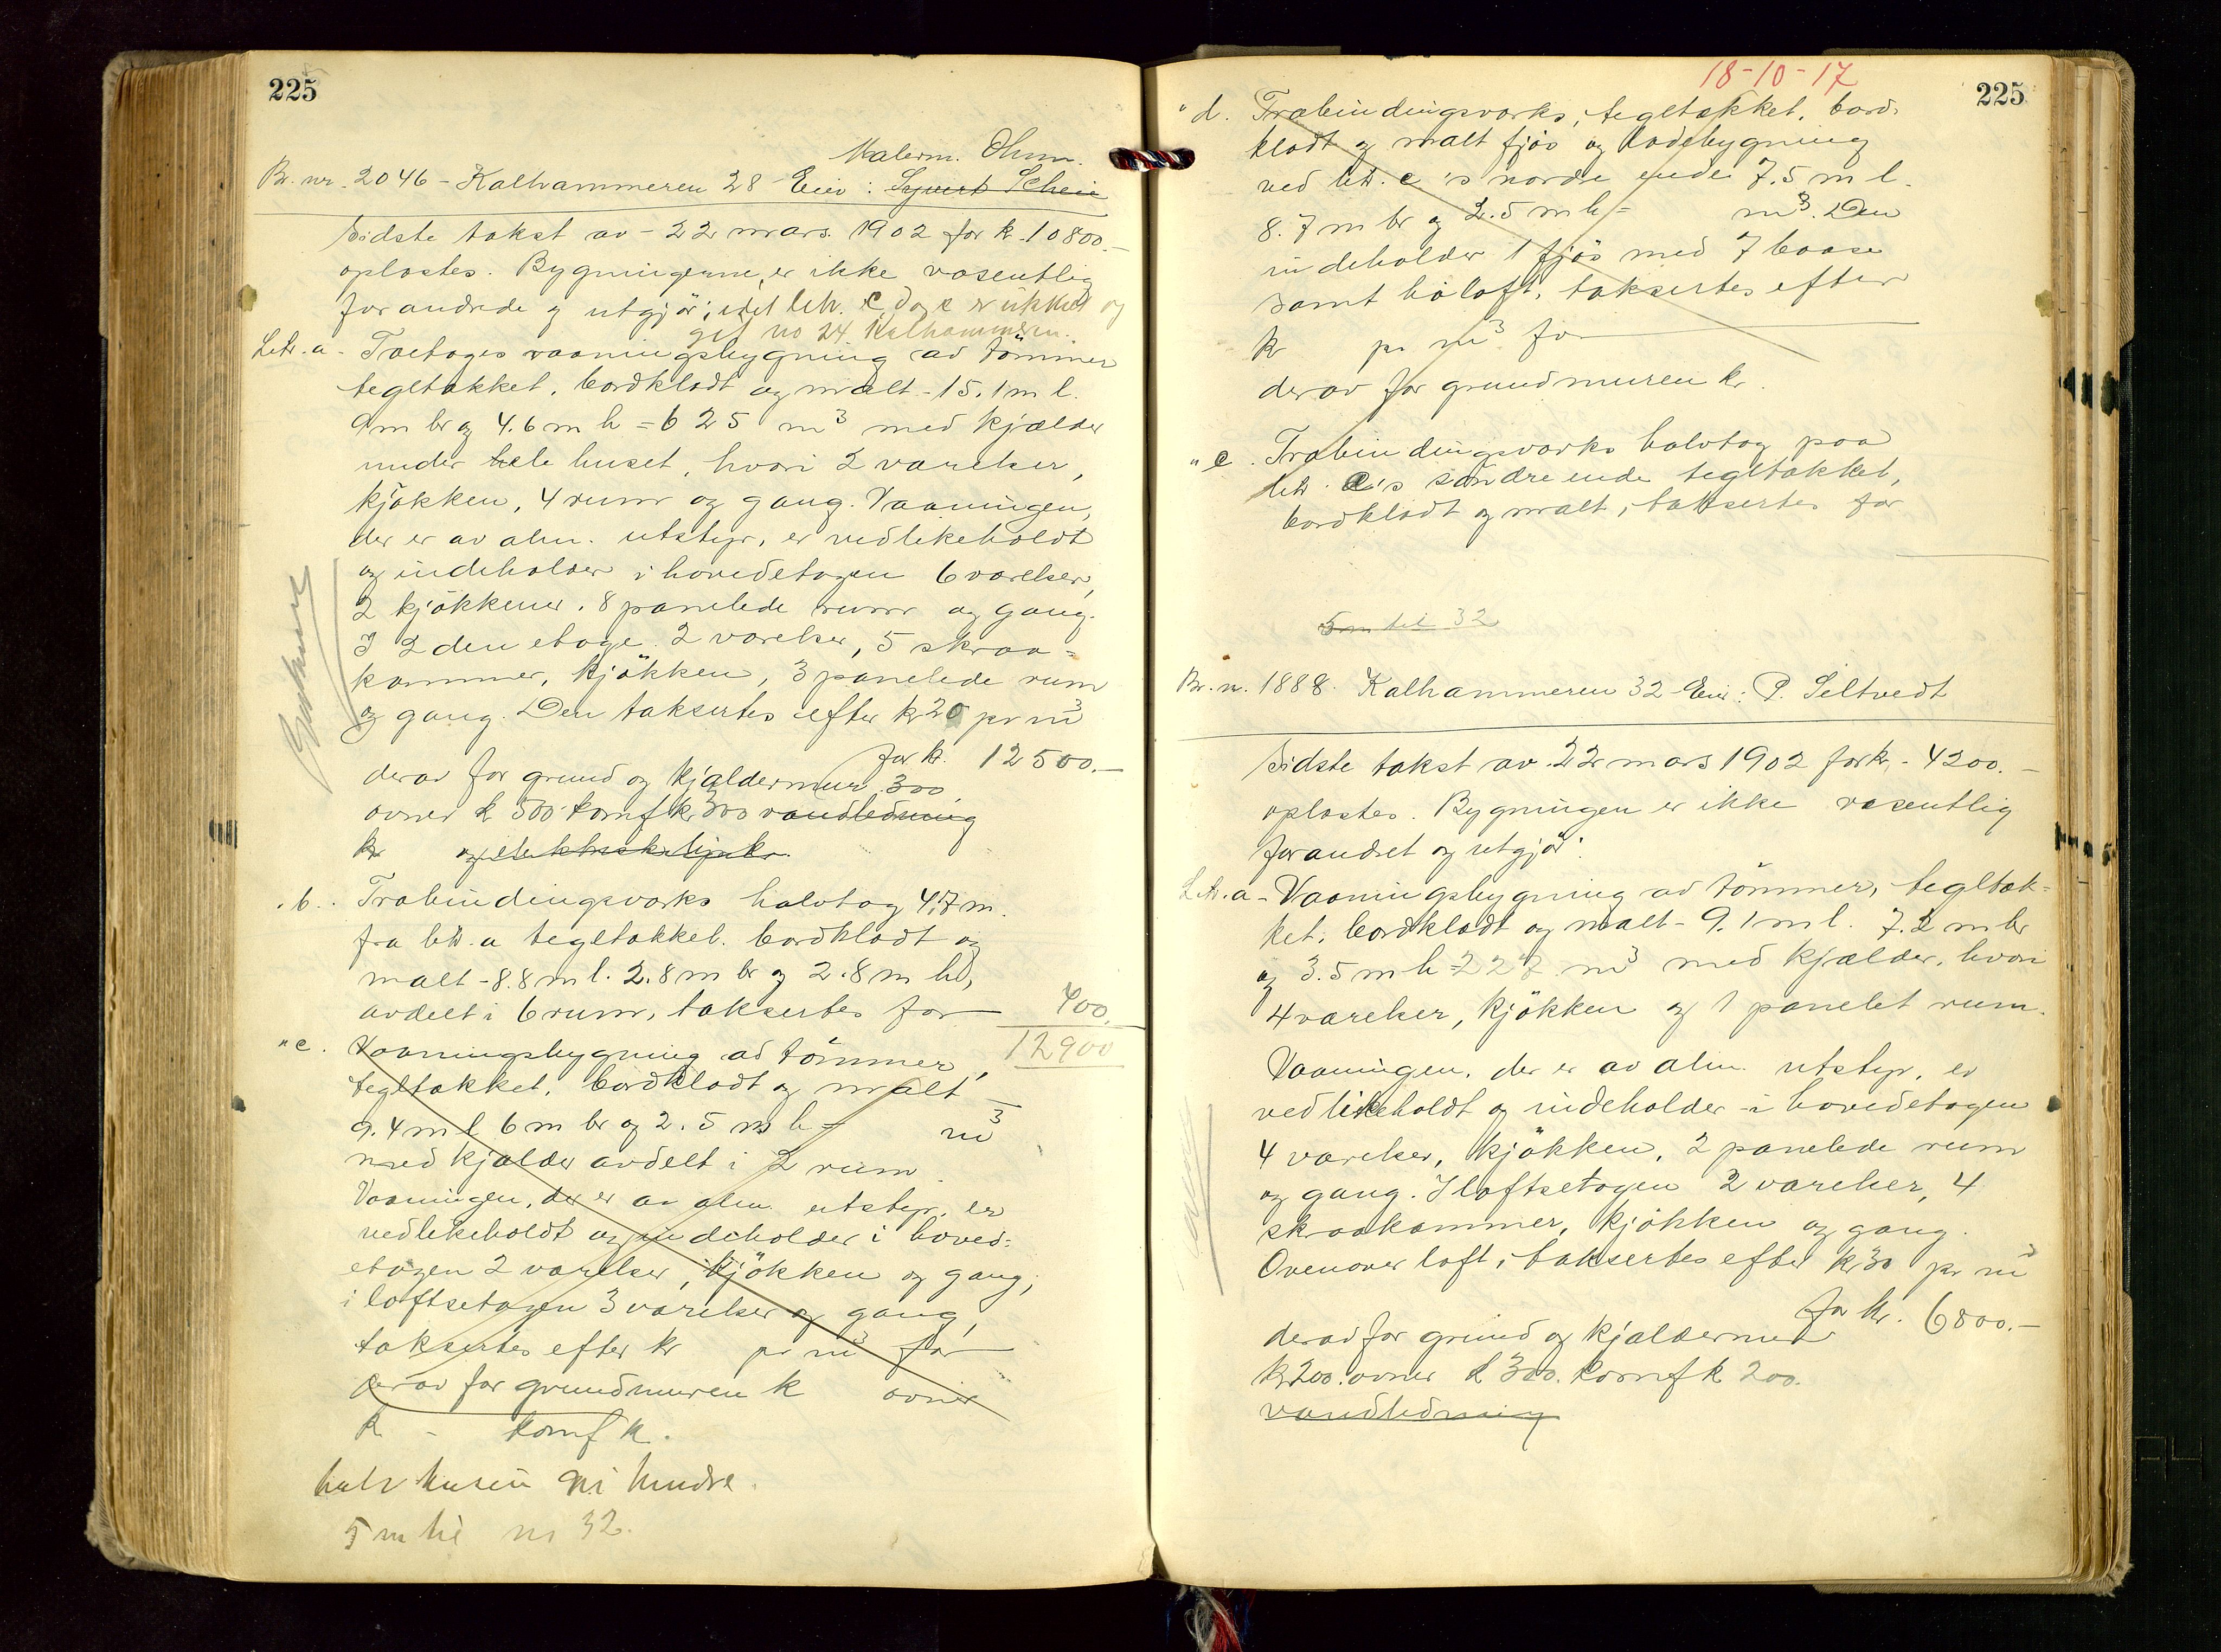 225
Malerm. Ohm.
Br. nr. 2046 - Kalhammeren 28 Eier: Sjurd Schein
Sidste takst av - 22 mars 1902 for kr. 10800.-
oplæstes. Bygningerne er ikke væsentlig
forandrede og utgjør; idet litr. c, d og e er rukket og
git no 24 Kalhammeren.
Litr. a - Toetages vaaningsbygning av tömmer
tegltækket, bordklædt og malt - 15.1 m l.
9 m br og 4.6 m h = 625 m³ med kjælder
under hele huset, hvori 2 værelser,
kjökken, 4 rum og gang. Vaaningen,
der er av alm. utstyr, er vedlikeholdt
og indeholder i hovedetagen 6 værelser,
2 kjökkener, 8 panelede rum og gang.
I 2den etage 2 værelser, 5 skraa=
kammer, kjökken, 3 panelede rum
og gang. Den taksertes efter kr 20 pr m³
for kr. 12500.-
derav for grund og kjældermur 300
ovner k 500 komf kr 300 vandledning
kr og elektrisk lys kr.
" b. Træbindingsværks halvtag 4.7 m
fra litr. a tegltækket. bordklædt og
malt - 8.8 m l. 2.8 m br og 2.8 m h,
avdelt i 6 rum, taksertes for 400.
12900
" c. Vaaningsbygning av tömmer,
tegltækket, bordklædt og malt -
9.4 m l 6 m br og 2.5 m h = m³
med kjælder avdelt i 2 rum.
Vaaningen, der er av alm. utstyr, er
vedlikeholdt og indeholder i hoved=
etagen 2 værelser, kjökken og gang,
i loftsetagen 3 værelser og gang,
taksertes efter kr pr m³ for
derav for grundmuren k ovner
k - komf k.
5 m til nr 32.
18-10-17
225
" d. Træbindingsværks, tegltækket, bord=
klædt og malt fjös og ladebygning
ved litr. c's nordre ende 7.5 m l.
8.7 m br og 2.5 m h = m³. Den
indeholder 1 fjös med 7 baase
samt höloft, taksertes efter
kr pr m³ for
derav for grundmuren kr.
" e. Træbindingsværks halvtag paa
litr. c's söndre ende tegltækket,
bordklædt og malt, taksertes for
5 m til 32
Br. nr. 1888. Kalhammeren 32 Eier: P. Seltvedt
Sidste takst av 22 mars 1902 for kr. 4200.-
oplæstes. Bygningen er ikke væsentlig
forandret og utgjör:
Litr. a - Vaaningsbygning av tömmer, tegltæk=
ket, bordklædt og malt - 9.1 m l. 7.2 m br
og 3.5 m h = 227 m³ med kjælder, hvori
4 værelser, kjökken og 1 panelet rum.
Vaaningen, der er av alm. utstyr, er
vedlikeholdt og indeholder i hovedetagen
4 værelser, kjökken, 2 panelede rum
og gang. I loftsetagen 2 værelser, 4
skraakammer, kjökken og gang.
Ovenover loft, taksertes efter kr 30 pr m³
for kr. 6800.-
derav for grund og kjældermur
kr 200. ovner k 300. komf k 200.
vandledning